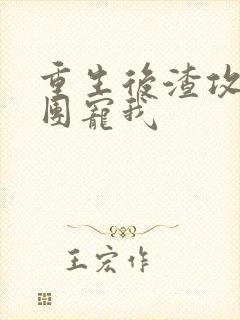 重生後渣攻
團寵我
王宏作